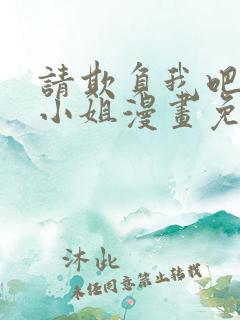 請欺負我吧
小姐漫畫免
沐此
未经同意禁止转载